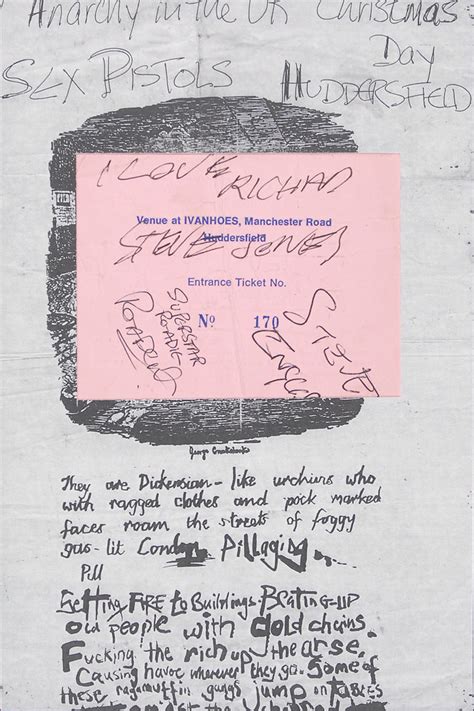 Anarchy in the UK Christmas
Day
SEX PISTOLS HUDDERSFIELD
I LOVE RICHAD
Venue at IVANHOES, Manchester Road
Huddersfield
STEVE JONES
Entrance Ticket No.
Nº 170
SUPERSTAR
ROADIE
ROADENT
STEVE
They are Dickensian - like urchins who
with ragged clothes and pock marked
faces roam the streets of foggy
gas-lit London Pillaging...
Pill
SETTing FIRE to Buildings BEATING-UP
old people with gold chains.
Fucking the rich up the arse.
Causing havoc wherever they go. Some of
these ragamuffin gangs jump on TABLES